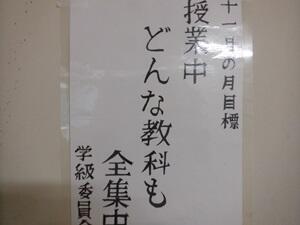 十一月の月目標
授業中
どんな教科も
全集中
学級委員会